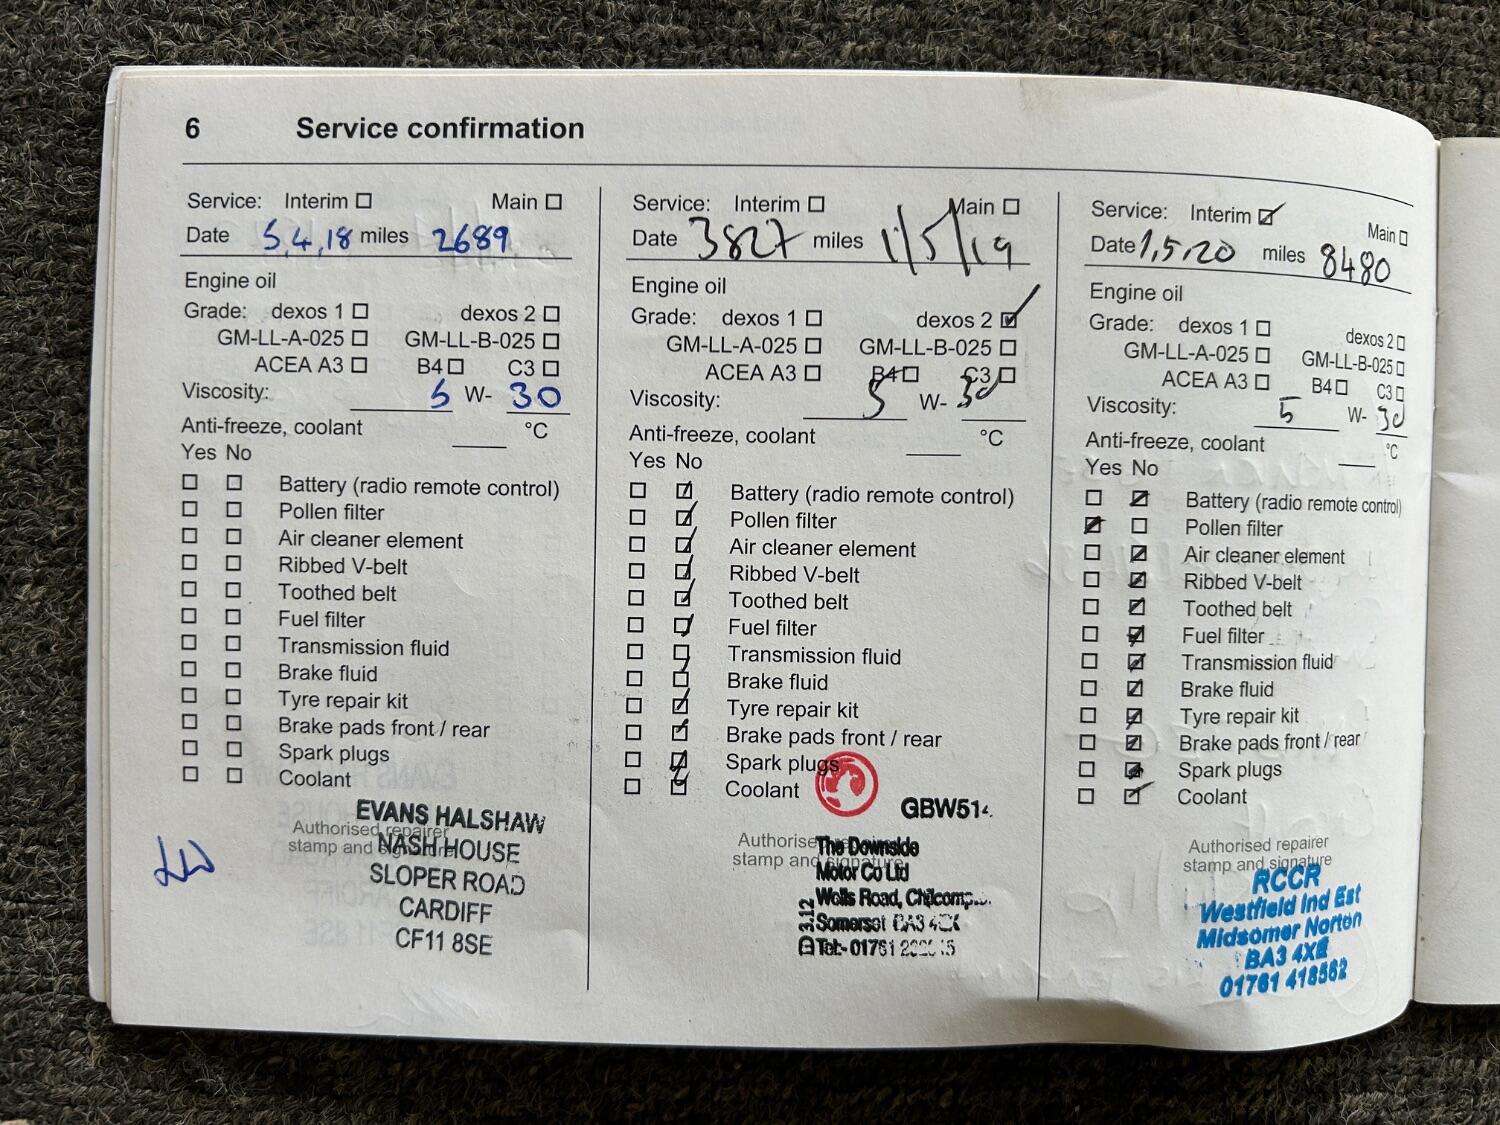 6 Service confirmation
Service: Interim Main
Date 5,4,18 miles 2689
Engine oil
Grade: dexos 1 dexos 2
GM-LL-A-025 GM-LL-B-025
ACEA A3 B4 C3
Viscosity: 5 W- 30
Anti-freeze, coolant °C
Yes No
Battery (radio remote control)
Pollen filter
Air cleaner element
Ribbed V-belt
Toothed belt
Fuel filter
Transmission fluid
Brake fluid
Tyre repair kit
Brake pads front / rear
Spark plugs
Coolant
Authorised repairer
stamp and signature
EVANS HALSHAW
NASH HOUSE
SLOPER ROAD
CARDIFF
CF11 8SE
Service: Interim Main
Date 3827 miles 1/5/19
Engine oil
Grade: dexos 1 dexos 2
GM-LL-A-025 GM-LL-B-025
ACEA A3 B4 C3
Viscosity: 5 W- 30
Anti-freeze, coolant °C
Yes No
Battery (radio remote control)
Pollen filter
Air cleaner element
Ribbed V-belt
Toothed belt
Fuel filter
Transmission fluid
Brake fluid
Tyre repair kit
Brake pads front / rear
Spark plugs
Coolant
GBW514
Authorised repairer
stamp and signature
The Downside
Motor Co Ltd
Wells Road,
Somerset
Tel:- 01761
Service: Interim Main
Date 1,5,20 miles 8480
Engine oil
Grade: dexos 1 dexos 2
GM-LL-A-025 GM-LL-B-025
ACEA A3 B4 C3
Viscosity: 5 W- 30
Anti-freeze, coolant °C
Yes No
Battery (radio remote control)
Pollen filter
Air cleaner element
Ribbed V-belt
Toothed belt
Fuel filter
Transmission fluid
Brake fluid
Tyre repair kit
Brake pads front / rear
Spark plugs
Coolant
Authorised repairer
stamp and signature
RCCR
Westfield Ind Est
Midsomer Norton
BA3 4XE
01761 418562